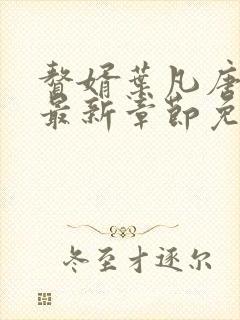 赘婿叶凡唐
最新章节免
冬至才逐尔